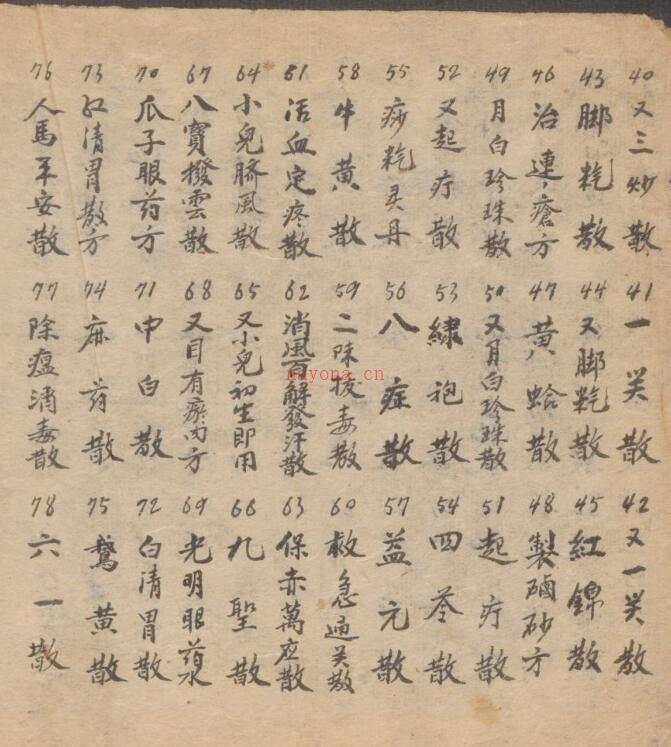 40 又三妙散 41 一笑散 42 又一笑散
43 脚氣散 44 又脚氣散 45 紅錦散
46 治連瘡方 47 黃蛤散 48 製磠砂方
49 月白珍珠散 50 又月白珍珠散 51 起疔散
52 又起疔散 53 繡袍散 54 四苓散
55 痧氣灵丹 56 八症散 57 益元散
58 牛黃散 59 二味拔毒散 60 救急通关散
61 活血定疼散 62 消風百解發汗散 63 保赤萬应散
64 小兒臍風散 65 又小兒初生即用 66 九聖散
67 八寶撥雲散 68 又目有瘀肉方 69 光明眼药水
70 瓜子眼药方 71 中白散 72 白清胃散
73 红清胃散方 74 麻药散 75 鵞黃散
76 人馬平安散 77 除瘟消毒散 78 六一散
nayona.cn